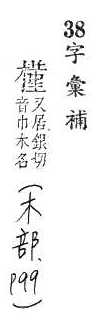 38字彙補
又居銀切
音巾木名
(木部, p99)